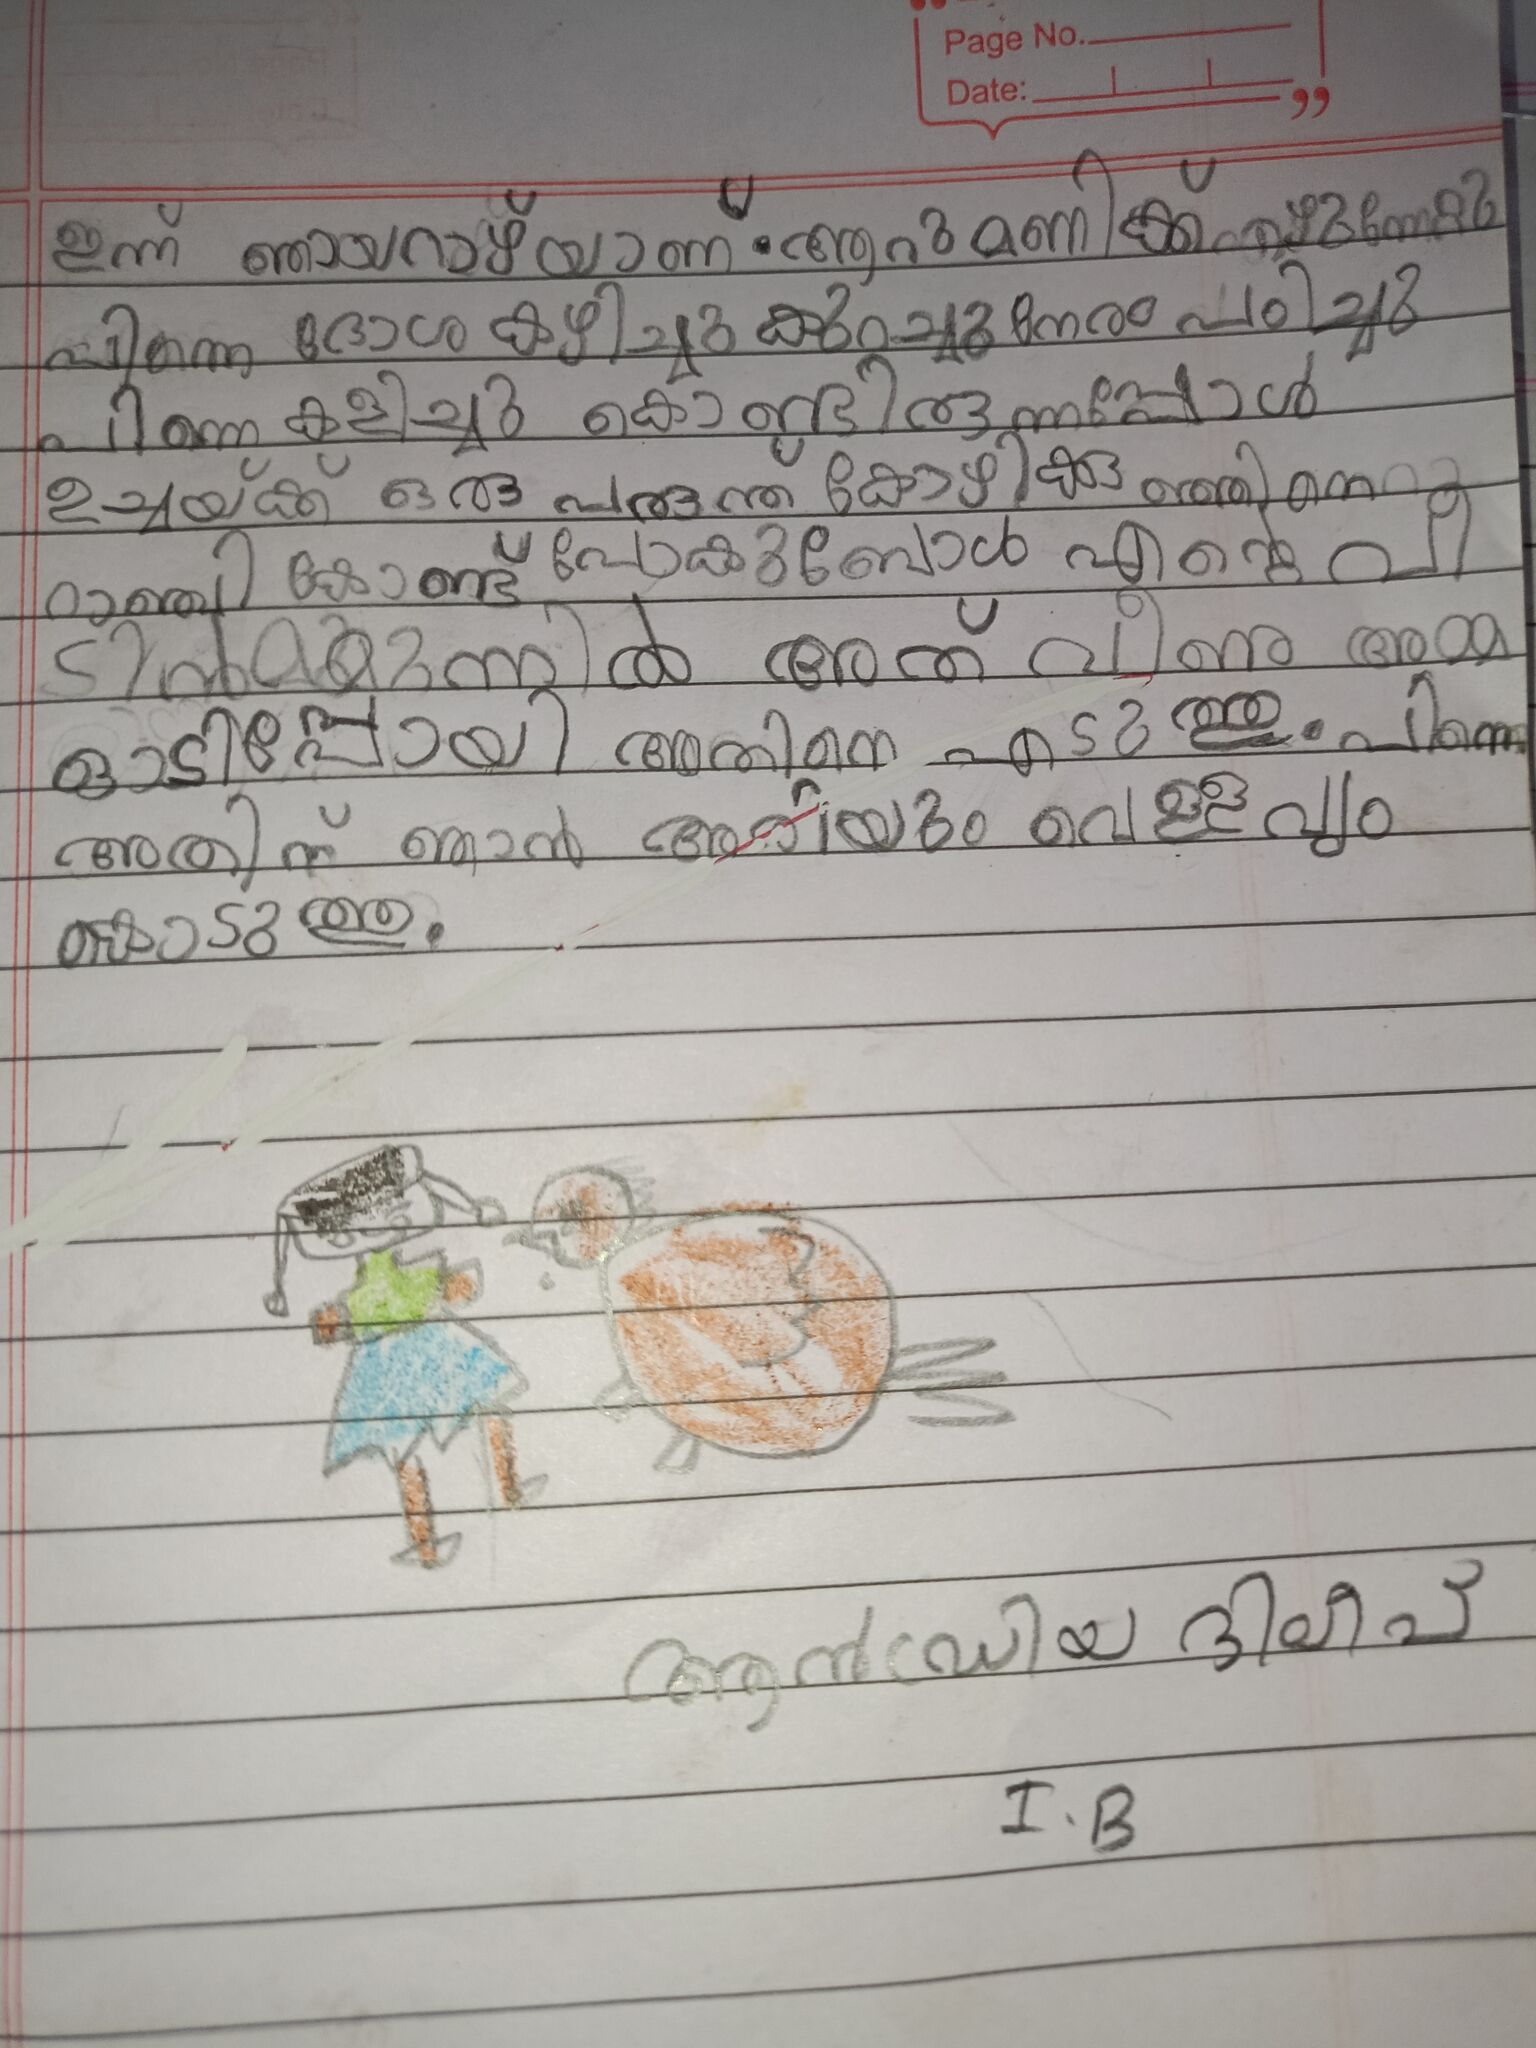 Page No.
Date:
ഇന്ന് ഞായറാഴ്യാണ്. ആറു മണിക്ക് എഴുന്നേറ്റു
പിന്നെ ദോശ കഴിച്ചു കുറച്ചു നേരം പഠിച്ചു
പിന്നെ കളിച്ചു കൊണ്ടിരുന്നപ്പോൾ
ഉച്ചയ്ക്ക് ഒരു പരുന്ത് കോഴിക്കുഞ്ഞിനെ
റാഞ്ചി കോണ്ട് പോകുബോൾ എന്റെ വീ
ടിൻ മുന്നിൽ അത് വീണു അമ്മ
ഓടിപ്പോയി അതിനെ എടുത്തു. പിന്നെ
അതിന് ഞാൻ അരിയും വെള്ളവും
കൊടുത്തു.
ആൻഡ്രിയ ദിലീപ്
I.B